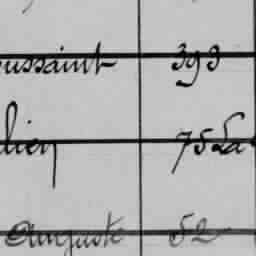 oussaint 393
lien 75 La
Auguste 52